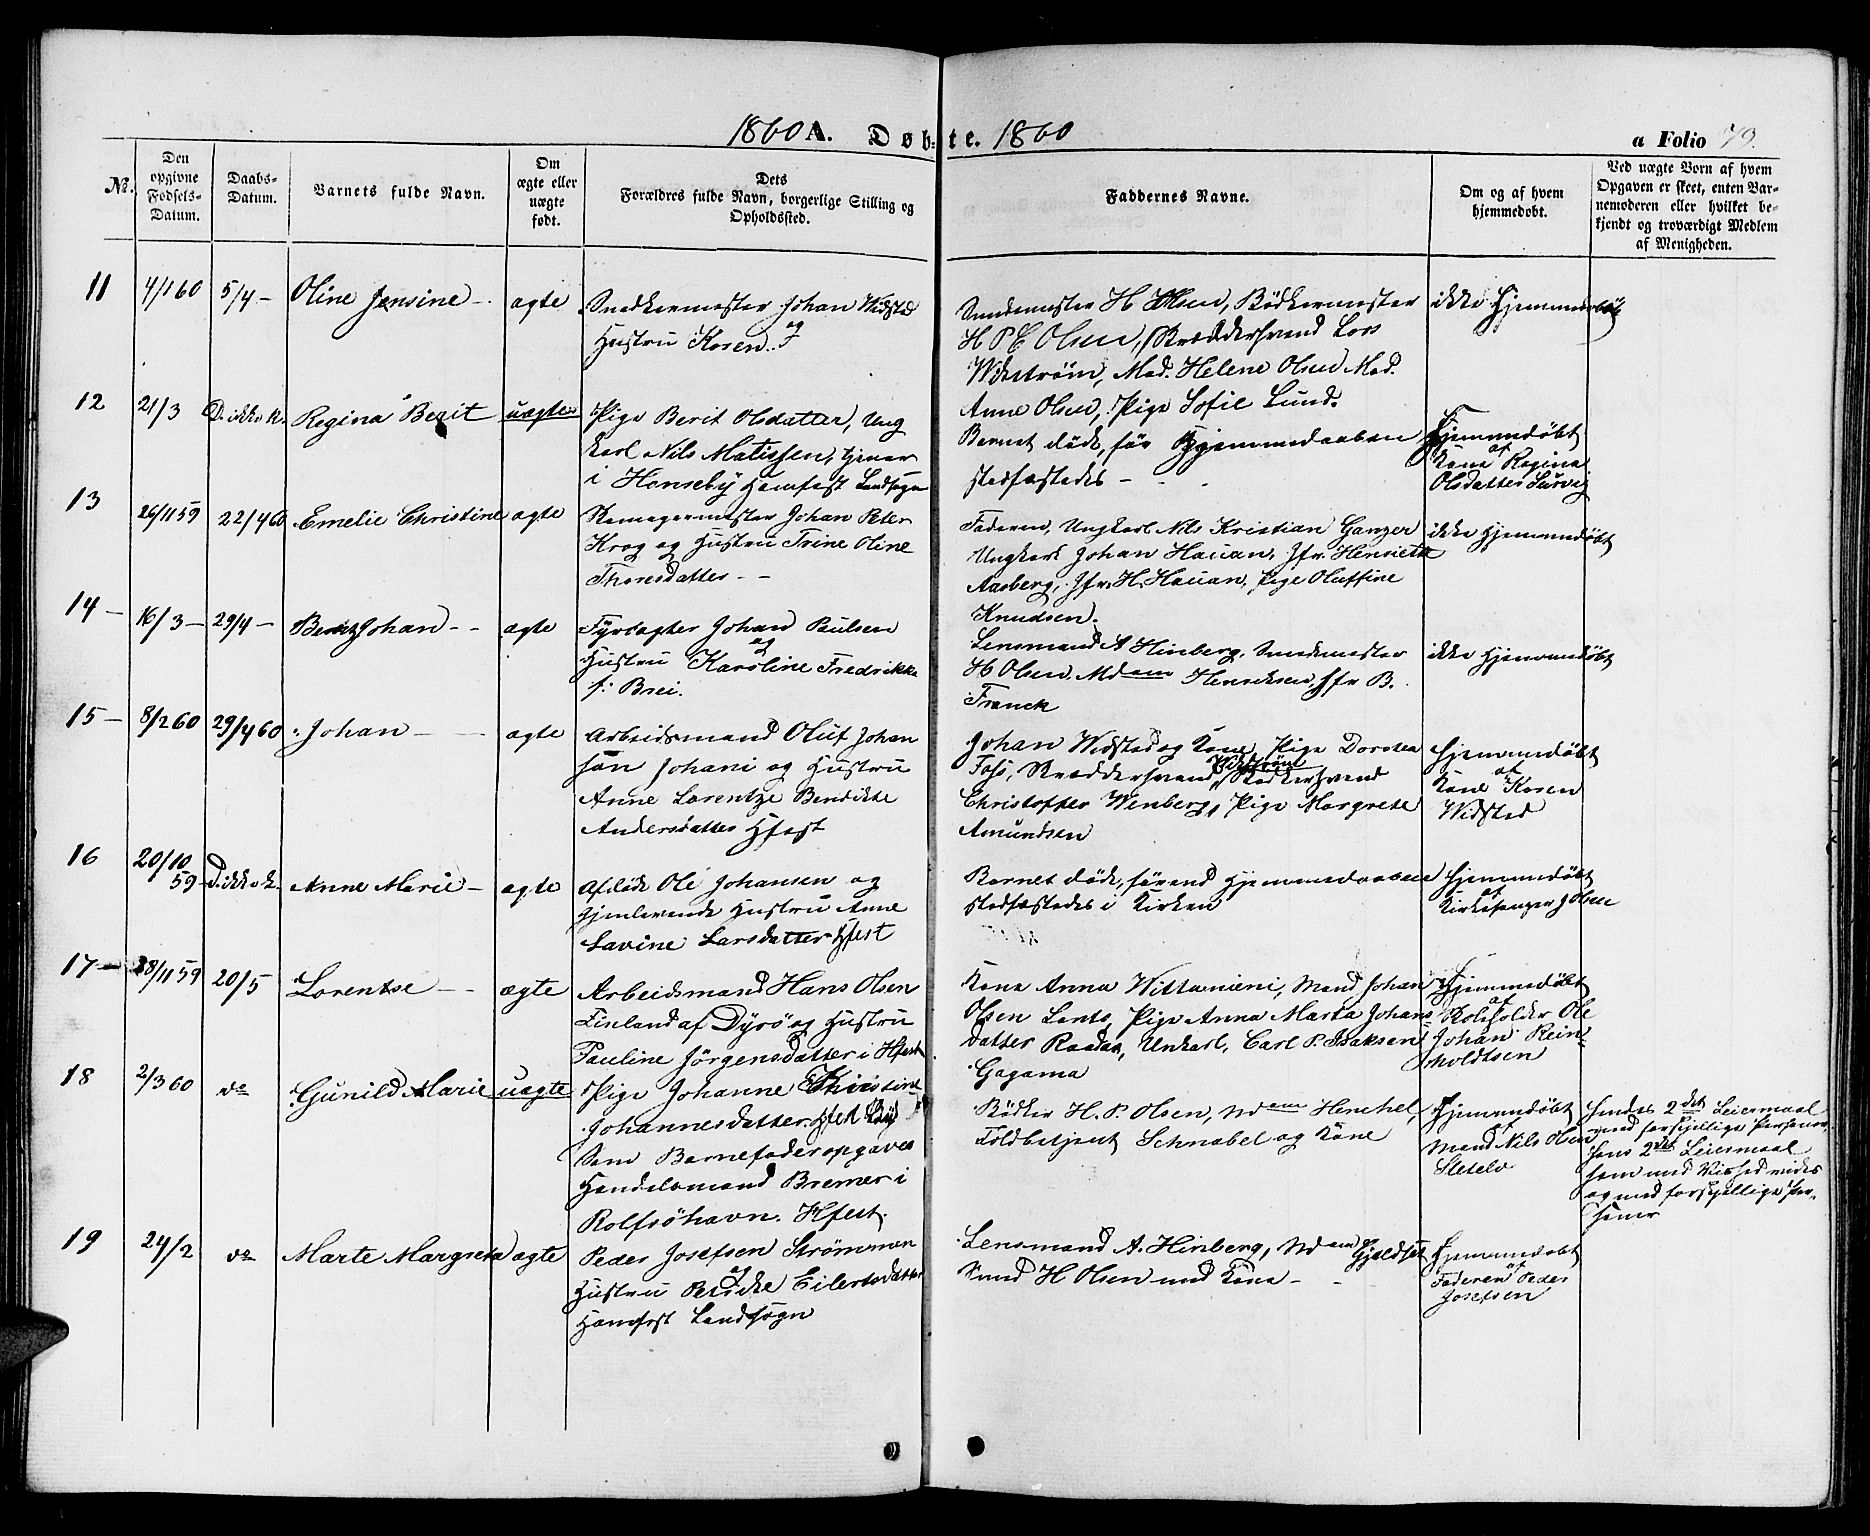 1860 A. Døbte. 1860
a Folio 79.
No.
Den opgivne Fødsels-Datum.
Daabs-Datum.
Barnets fulde Navn.
Om ægte eller uægte født.
Dets Forældres fulde Navn, borgerlige Stilling og Opholdssted.
Faddernes Navne.
Om og af hvem hjemmedøbt.
Ved uægte Børn af hvem
Opgaven er skeet, enten Bar-
nemoderen eller hvilket be-
kjendt og troværdigt Medlem
af Menigheden.
11 4/1 60 5/4 - Oline Jensine - ægte
Snedkermester Johan Widsted
og
Hustru Karen.
Smedemester H Olsen, Bødkermester
H P E Olsen, Skræddersvend Lars
Wikstrøm, Mad. Helene Olsen Mad.
Anne Olsen, Pige Sofie Lund.
ikke Hjemmedøbt
12 21/3 D. ikke k. Regina Berit uægte
Pige Berit Olsdatter, Ung
karl Nils Matissen, tjener
i Hønseby Hamfest Landsogn
Barnet døde, før Hjemmedaaben
stadfæstedes -
Hjemmedøbt
af
Kone Regina
Olsdatter
13 26/11 59 22/4 60 Emelie Christine ægte
Remagermester Johan Peter
Krog og Hustru Trine Oline
Thoresdatter - -
Faderen, Ungkarl Nils Kristian Ganzer
Ungkarl Johan Hauan, Jfr. Henriette
Aasberg, Jfr. H. Hauan, Pige Oluffine
Knudsen.
ikke Hjemmedøbt
14 - 16/3 - 29/4 - Bernt Johan - - ægte
Fyrvogter Johan Paulsen
og
Hustru Karoline Fredrikke
f: Brei.
Lensmand A Hinberg, Smedemester
H Olsen, Mdem Henriksen, Jfr B.
Franck
ikke Hjemmedøbt
15 - 8/2 60 29/4 60 Johan - - ægte
Arbeidsmand Oluf Johan
sen Johani og Hustru
Anne Lorentze Bendikte
Andersdatter Hfest
Johan Widsted og Kone, Pige Dorotea
Foss, Skræddersvend Wikstrøm, Bødkersvend
Christoffer Wenberg, Pige Margrete
Amundsen
Hjemmedøbt
af
Kone Karen
Widsted
16 20/10 59 D. ikke k. Anne Marie - ægte
Afdøde Ole Johansen og
gjenlevende Hustru Anne
Lavine Larsdatter Hfest
Barnet døde, førend Hjemmedaaben
stadfæstedes i Kirken
Hjemmedøbt
af
Kirkesanger J Olsen
17 - 28/11 59 20/5 Lorentse - - ægte
Arbeidsmand Hans Olsen
Finland af Dyrø og Hustru
Pauline Jørgensdatter i Hfest
Kone Anna Wittanieni, Mand Johan
Olsen Lanto, Pige Anna Marta Johans
datter Raadan, Unkarl, Carl P. Isaksen
Gagama
Hjemmedøbt
af
Ole
Johan Rein-
holdtsen
18 2/3 60 do Gunild Marie uægte
Pige Johanne Kristine
Johannesdatter, Hfest By
Som Barnefader opgaves
Handelsmand Bremer i
Rolfsøhavn. Hfest.
Bødker H. P. Olsen, Mdem Henchel,
Toldbetjent Schnabel og Kone
Hjemmedøbt
af
Mand Nils Olsen
Sletelv
hendes 2det Leiermaal
med forskjellige Personer,
hans 2det Leiermaal
som med Vished vides
og med forskjellige Per-
soner
19 24/2 do Marte Margreta ægte
Peder Josefsen Strømmen
og
Hustru Eilertsdatter
Hamfest Landsogn
Lensmand A. Hinberg, Mdem Gjeldset
Smed H Olsen med Kone -
Hjemmedøbt
af
Faderen Peder
Josefsen